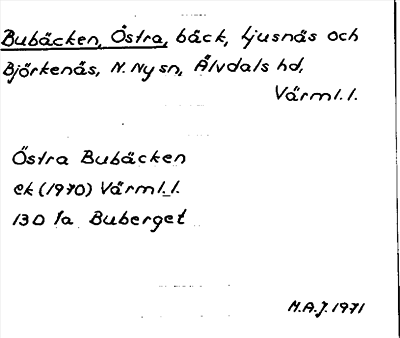 Bubäcken, Östra, bäck, Ljusnäs och
Björkenäs, N. Ny sn, Älvdals hd,
Värml. l.
Östra Bubäcken
ek (1970) Värml. l.
13D 1a Buberget
M.A.J. 1971